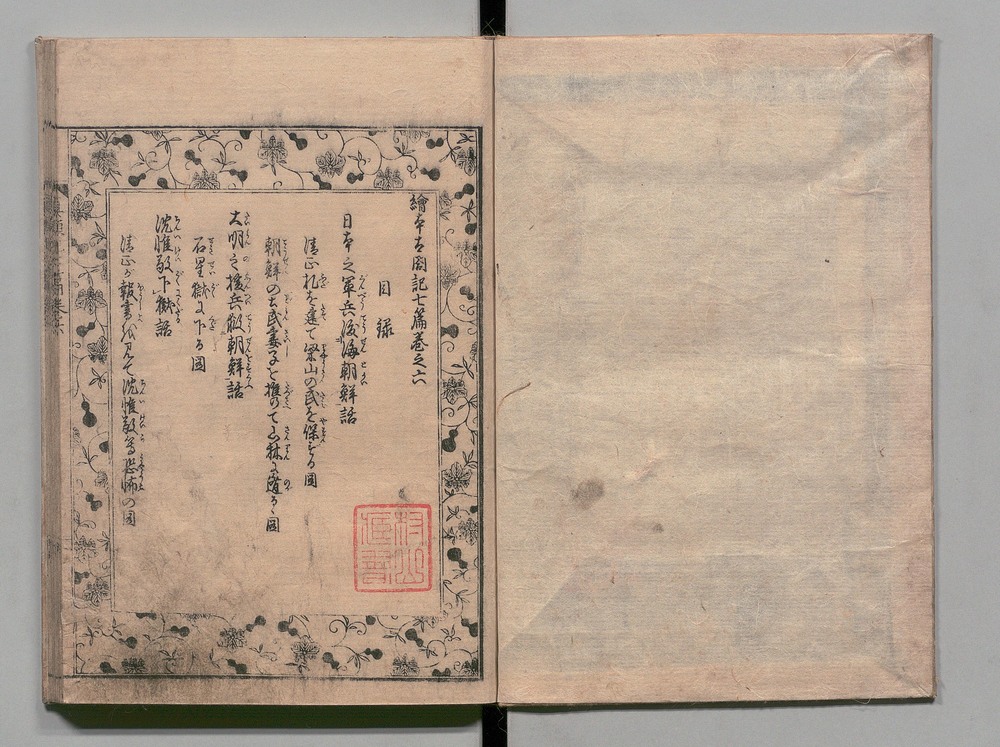 繪本太閤記七篇巻之六
目録
日本之軍兵渡海朝鮮話
清正札を建て梁山の民を保ずる図
朝鮮の土民妻子を携のて山林に遁るゝ図
大明之援兵殺朝鮮話
石星獄に下る図
沈惟敬下獄話
清正が報書を見て沈惟敬等恐怖の図